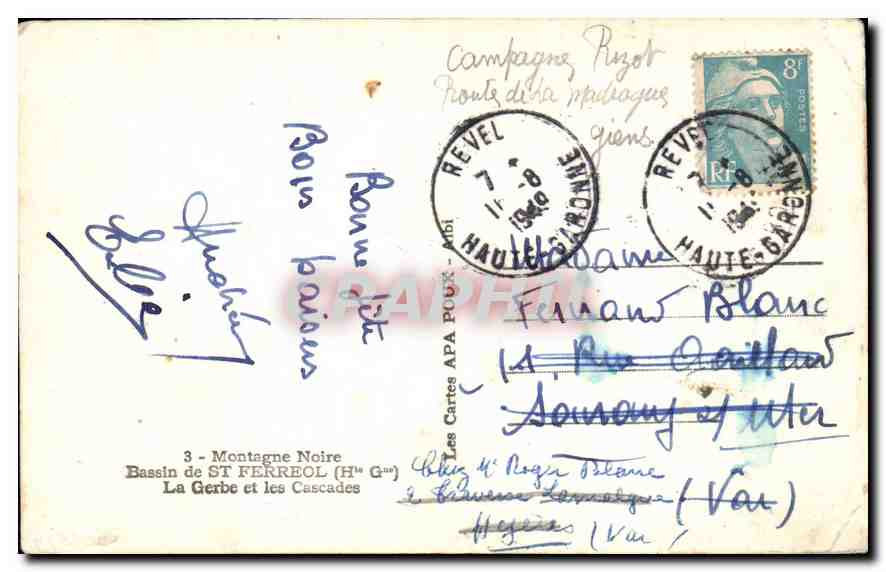 Campagne Rizot
Route de la Madrague
giens
8F
POSTES
RF
REVEL
7 *
11 -8
1949
HAUTE-GARONNE
REVEL
HAUTE-GARONNE
Bonne fête
Bons baisers
Les Cartes APA POUX - Albi
Madame
Fernand Blanc
Rue Gaillard
s/ Mer
(Var)
Chez Mr Roger Blanc
2 Traverse
Hyères (Var)
3 - Montagne Noire
Bassin de ST FERREOL (Hte Gne)
La Gerbe et les Cascades
CPAPHIL